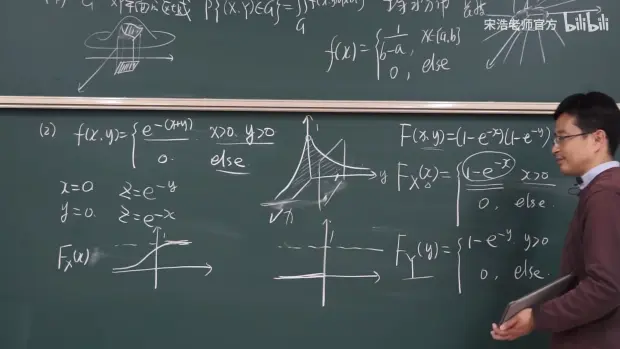 P{(X,Y)∈G}=∬
G
f(x)={ 1/(b-a), x∈[a,b]
0, else
宋浩老师官方 bilibili
(2) f(x,y)={ e^-(x+y) x>0, y>0
0. else
x=0 z=e^-y
y=0. z=e^-x
y
F(x,y)=(1-e^-x)(1-e^-y)
F_X(x)={ 1-e^-x x>0
0, else.
F_X(x)
1
1
F_Y(y)={ 1-e^-y, y>0
0, else.